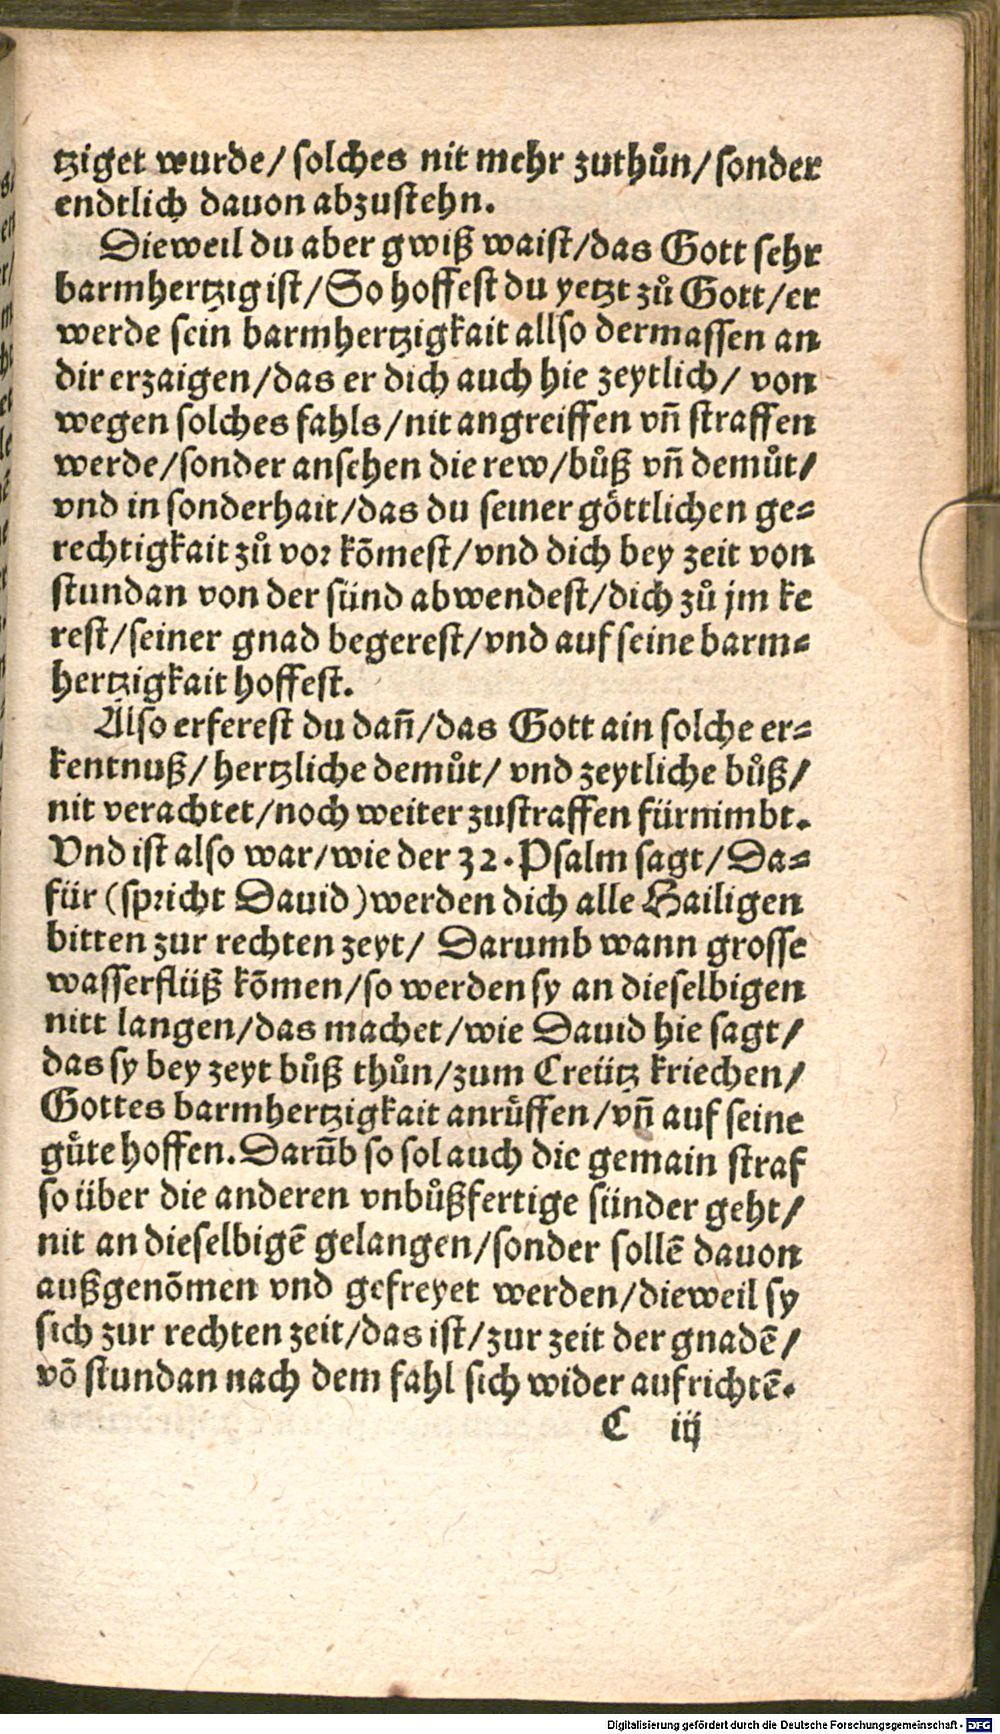 tziget wurde/ solches nit mehr zuthůn/ sonder
endtlich dauon abzustehn.
Dieweil du aber gwiß waist/das Gott sehr
barmhertzig ist/ So hoffest du yetzt zů Gott/er
werde sein barmhertzigkait allso dermassen an
dir erzaigen/das er dich auch hie zeytlich/ von
wegen solches fahls/nit angreiffen vñ straffen
werde/sonder ansehen die rew/bůß vñ demůt/
vnd in sonderhait/das du seiner göttlichen ge-
rechtigkait zů vor kõmest/vnd dich bey zeit von
stundan von der sünd abwendest/dich zů jm ke
rest/seiner gnad begerest/vnd auf seine barm-
hertzigkait hoffest.
Also erferest du dañ/das Gott ain solche er-
kentnuß/ hertzliche demůt/ vnd zeytliche bůß/
nit verachtet/noch weiter zustraffen fürnimbt.
Vnd ist also war/wie der 32. Psalm sagt/ Da-
für (spricht Dauid) werden dich alle Hailigen
bitten zur rechten zeyt/ Darumb wann grosse
wasserflüß kõmen/so werden sy an dieselbigen
nitt langen/das machet/wie Dauid hie sagt/
das sy bey zeyt bůß thůn/zum Creütz kriechen/
Gottes barmhertzigkait anrůffen/vñ auf seine
gůte hoffen. Darũb so sol auch die gemain straf
so über die anderen vnbůßfertige sünder geht/
nit an dieselbigẽ gelangen/sonder sollẽ dauon
außgenõmen vnd gefreyet werden/dieweil sy
sich zur rechten zeit/das ist/zur zeit der gnadẽ/
võ stundan nach dem fahl sich wider aufrichtẽ.
C iij
Digitalisierung gefördert durch die Deutsche Forschungsgemeinschaft - DFG